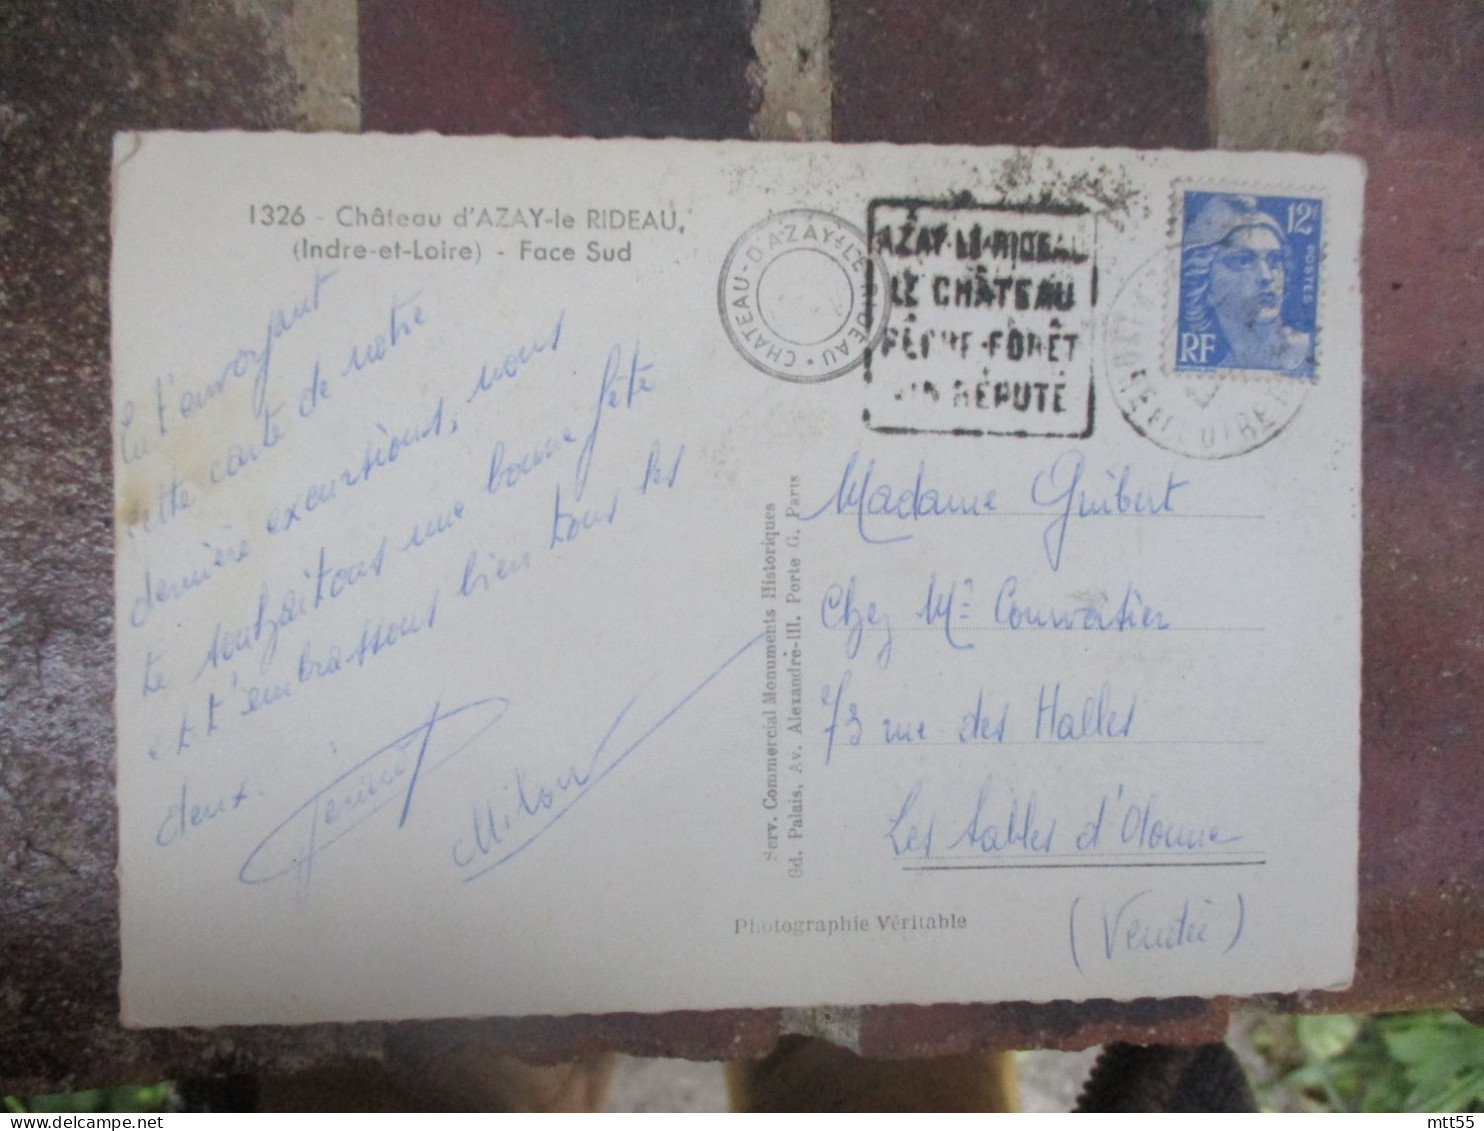 1326 - Château d'AZAY-le RIDEAU,
(Indre-et-Loire) - Face Sud
CHATEAU-D'AZAY-LE-RIDEAU
AZAY-LE-RIDEAU
LE CHÂTEAU
PÊCHE-FORÊT
VIN RÉPUTÉ
12F
POSTES
RF
En t'envoyant
cette carte de notre
dernière excursions, nous
te souhaitons une bonne fête
et t'embrassons bien tous les
deux.
Milou
Serv. Commercial Monuments Historiques
Gd. Palais, Av. Alexandre-III. Porte G. Paris
Madame Guibert
Chez Mr Couvratier
73 rue des Halles
Les Sables d'Olonne
(Vendée)
Photographie Véritable
mtt55